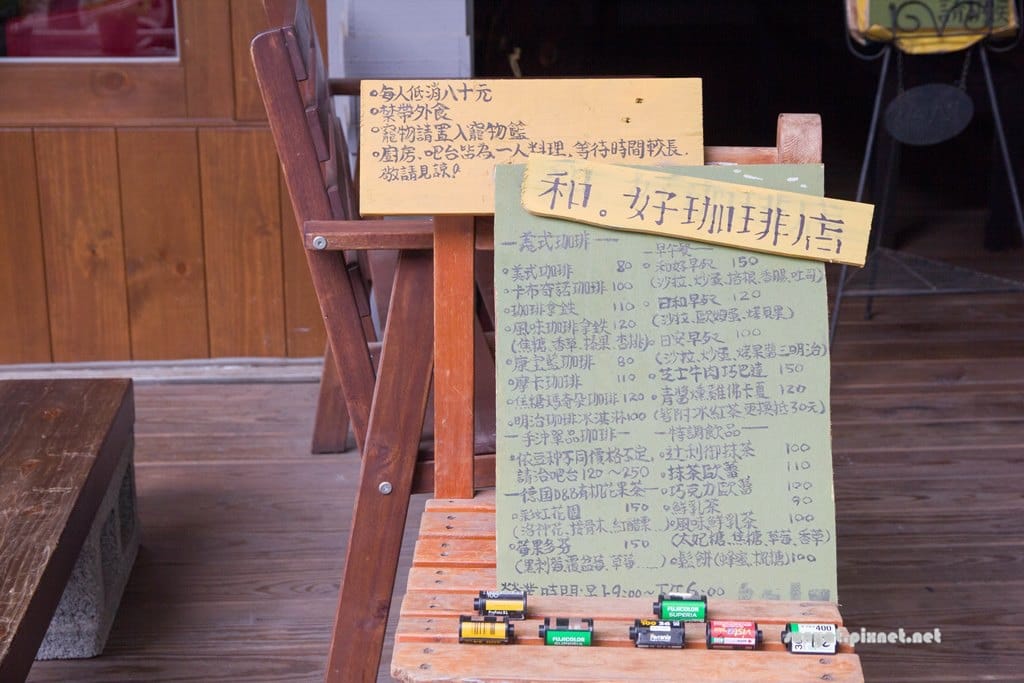 。每人低消八十元
。禁帶外食
。寵物請置入寵物籃
。廚房、吧台皆為一人料理、等待時間較長.
敬請見諒!
和。好珈琲店
一義式珈琲一
。美式珈琲 80
。卡布奇諾珈琲 100
。珈琲拿鉄 110
。風味珈琲拿鉄 120
(焦糖、香草、榛果、杏桃)
。康宝藍珈琲 80
。摩卡珈琲 110
。焦糖瑪奇朵珈琲 120
。明治珈琲冰淇淋 100
一手沖單品珈琲一
。依豆种不同價格不定,
請洽吧台 120~250
一德国D&B有机花果茶一
。彩虹花園 150
(洛神花、接骨木、紅醋栗)
。莓果多芬 150
(黑刺莓、覆盆莓、草莓……)
一早午餐一
。和好早欠 150
(沙拉、炒蛋、培根、香腸、吐司)
。日和早欠 120
(沙拉、歐姆蛋、焙貝果)
。日安早欠 100
(沙拉、炒蛋、三明治)
。芝士牛肉巧巴達 150
。青醬燻雞佛卡夏 120
(皆附冰紅茶.更換抵30元)
一特調飲品一
。辻利御抹茶 100
。抹茶歐蕾 110
。巧克力歐蕾 100
。鮮乳茶 90
。風味鮮乳茶 100
(太妃糖、焦糖、草莓、香草)
。鬆餅(蜂蜜、楓糖) 100
營業時間:早9:00~下午6:00
100
FUJICOLOR
SUPERIA
FUJICOLOR
SUPERIA
400
pixnet.net